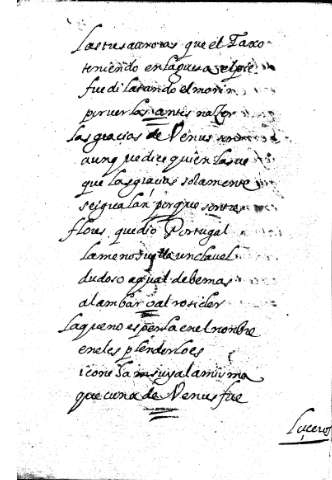 Las tres auroras que el Taxo
teniendo en la guesa el pie
fue dilatando el morir
por ver las antes nazer
las gracias de Venus son
aunque dice quien las ve
que las gracias solamente
se igualan porque son tres
flores que dio Portugal
la menos vella un clavel
dudoso a qual debe mas
al ambar o al rosicler
la que no es perla en el nombre
en el esplendor lo es
i con la suya la misma
que cuna de Venus fue
luceros